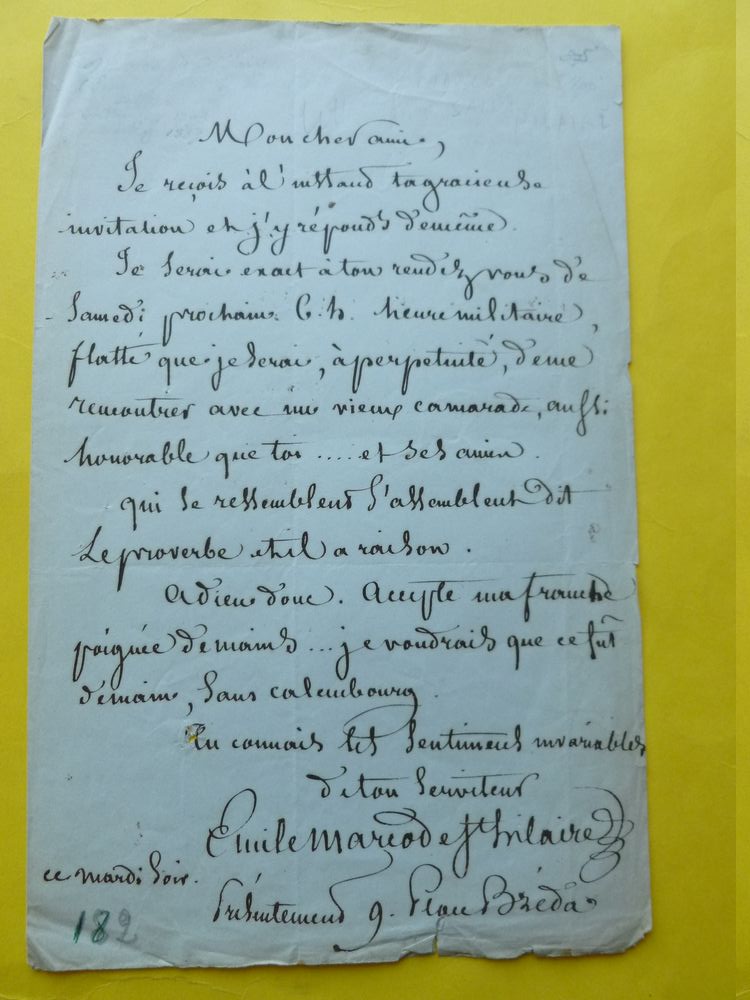 Mon cher ami,
Je reçois à l'instant ta gracieuse
invitation et j'y réponds de même.
Je serai exact à ton rendez vous de
Samedi prochain 6. h. heure militaire,
flatté que je serai, à perpétuité, de me
rencontrer avec un vieux camarade, aussi
honorable que toi .... et ses amis.
qui se ressemblent s'assemblent dit
Le proverbe et il a raison.
Adieu donc. Accepte ma franche
poignée de mains ... je voudrais que ce fût
demain, sans calembourg.
Tu connais les sentiments invariables
de ton serviteur
Emile Marco de St hilaire
ce mardi soir.
Présentement 9. Place Bréda
182